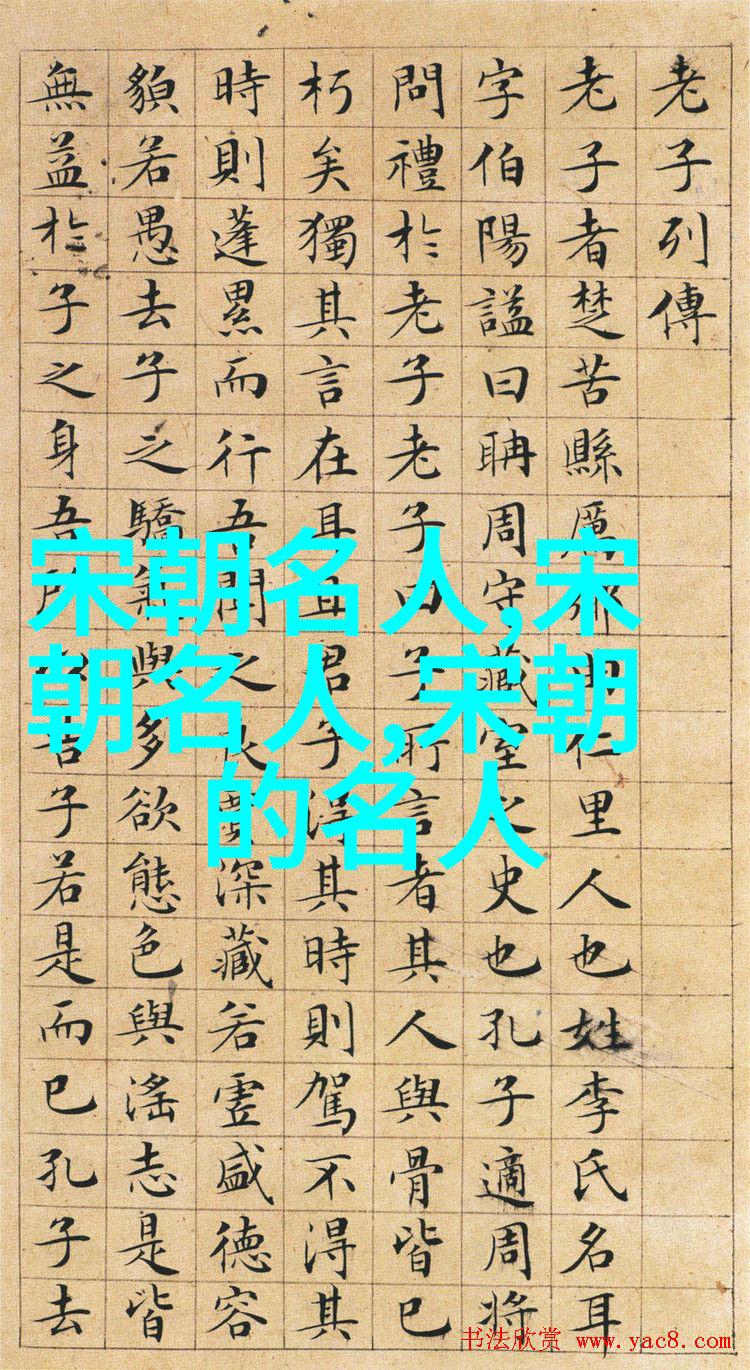 老子列傳
老子者楚苦縣厲鄉仁里人也姓李氏名耳
字伯陽謚曰聃周守藏室之史也孔子適周將
問禮於老子老子曰子所言者其人與骨皆已
朽矣獨其言在耳且君子得其時則駕不得其
時則蓬累而行吾聞之深藏若虛盛德容
貌若愚去子之驕氣與多欲態色與淫志是皆
無益於子之身吾告子若是而已孔子去
宋朝名人,宋
朝名人,宋朝
的名人
书法欣赏 www.yac8.com